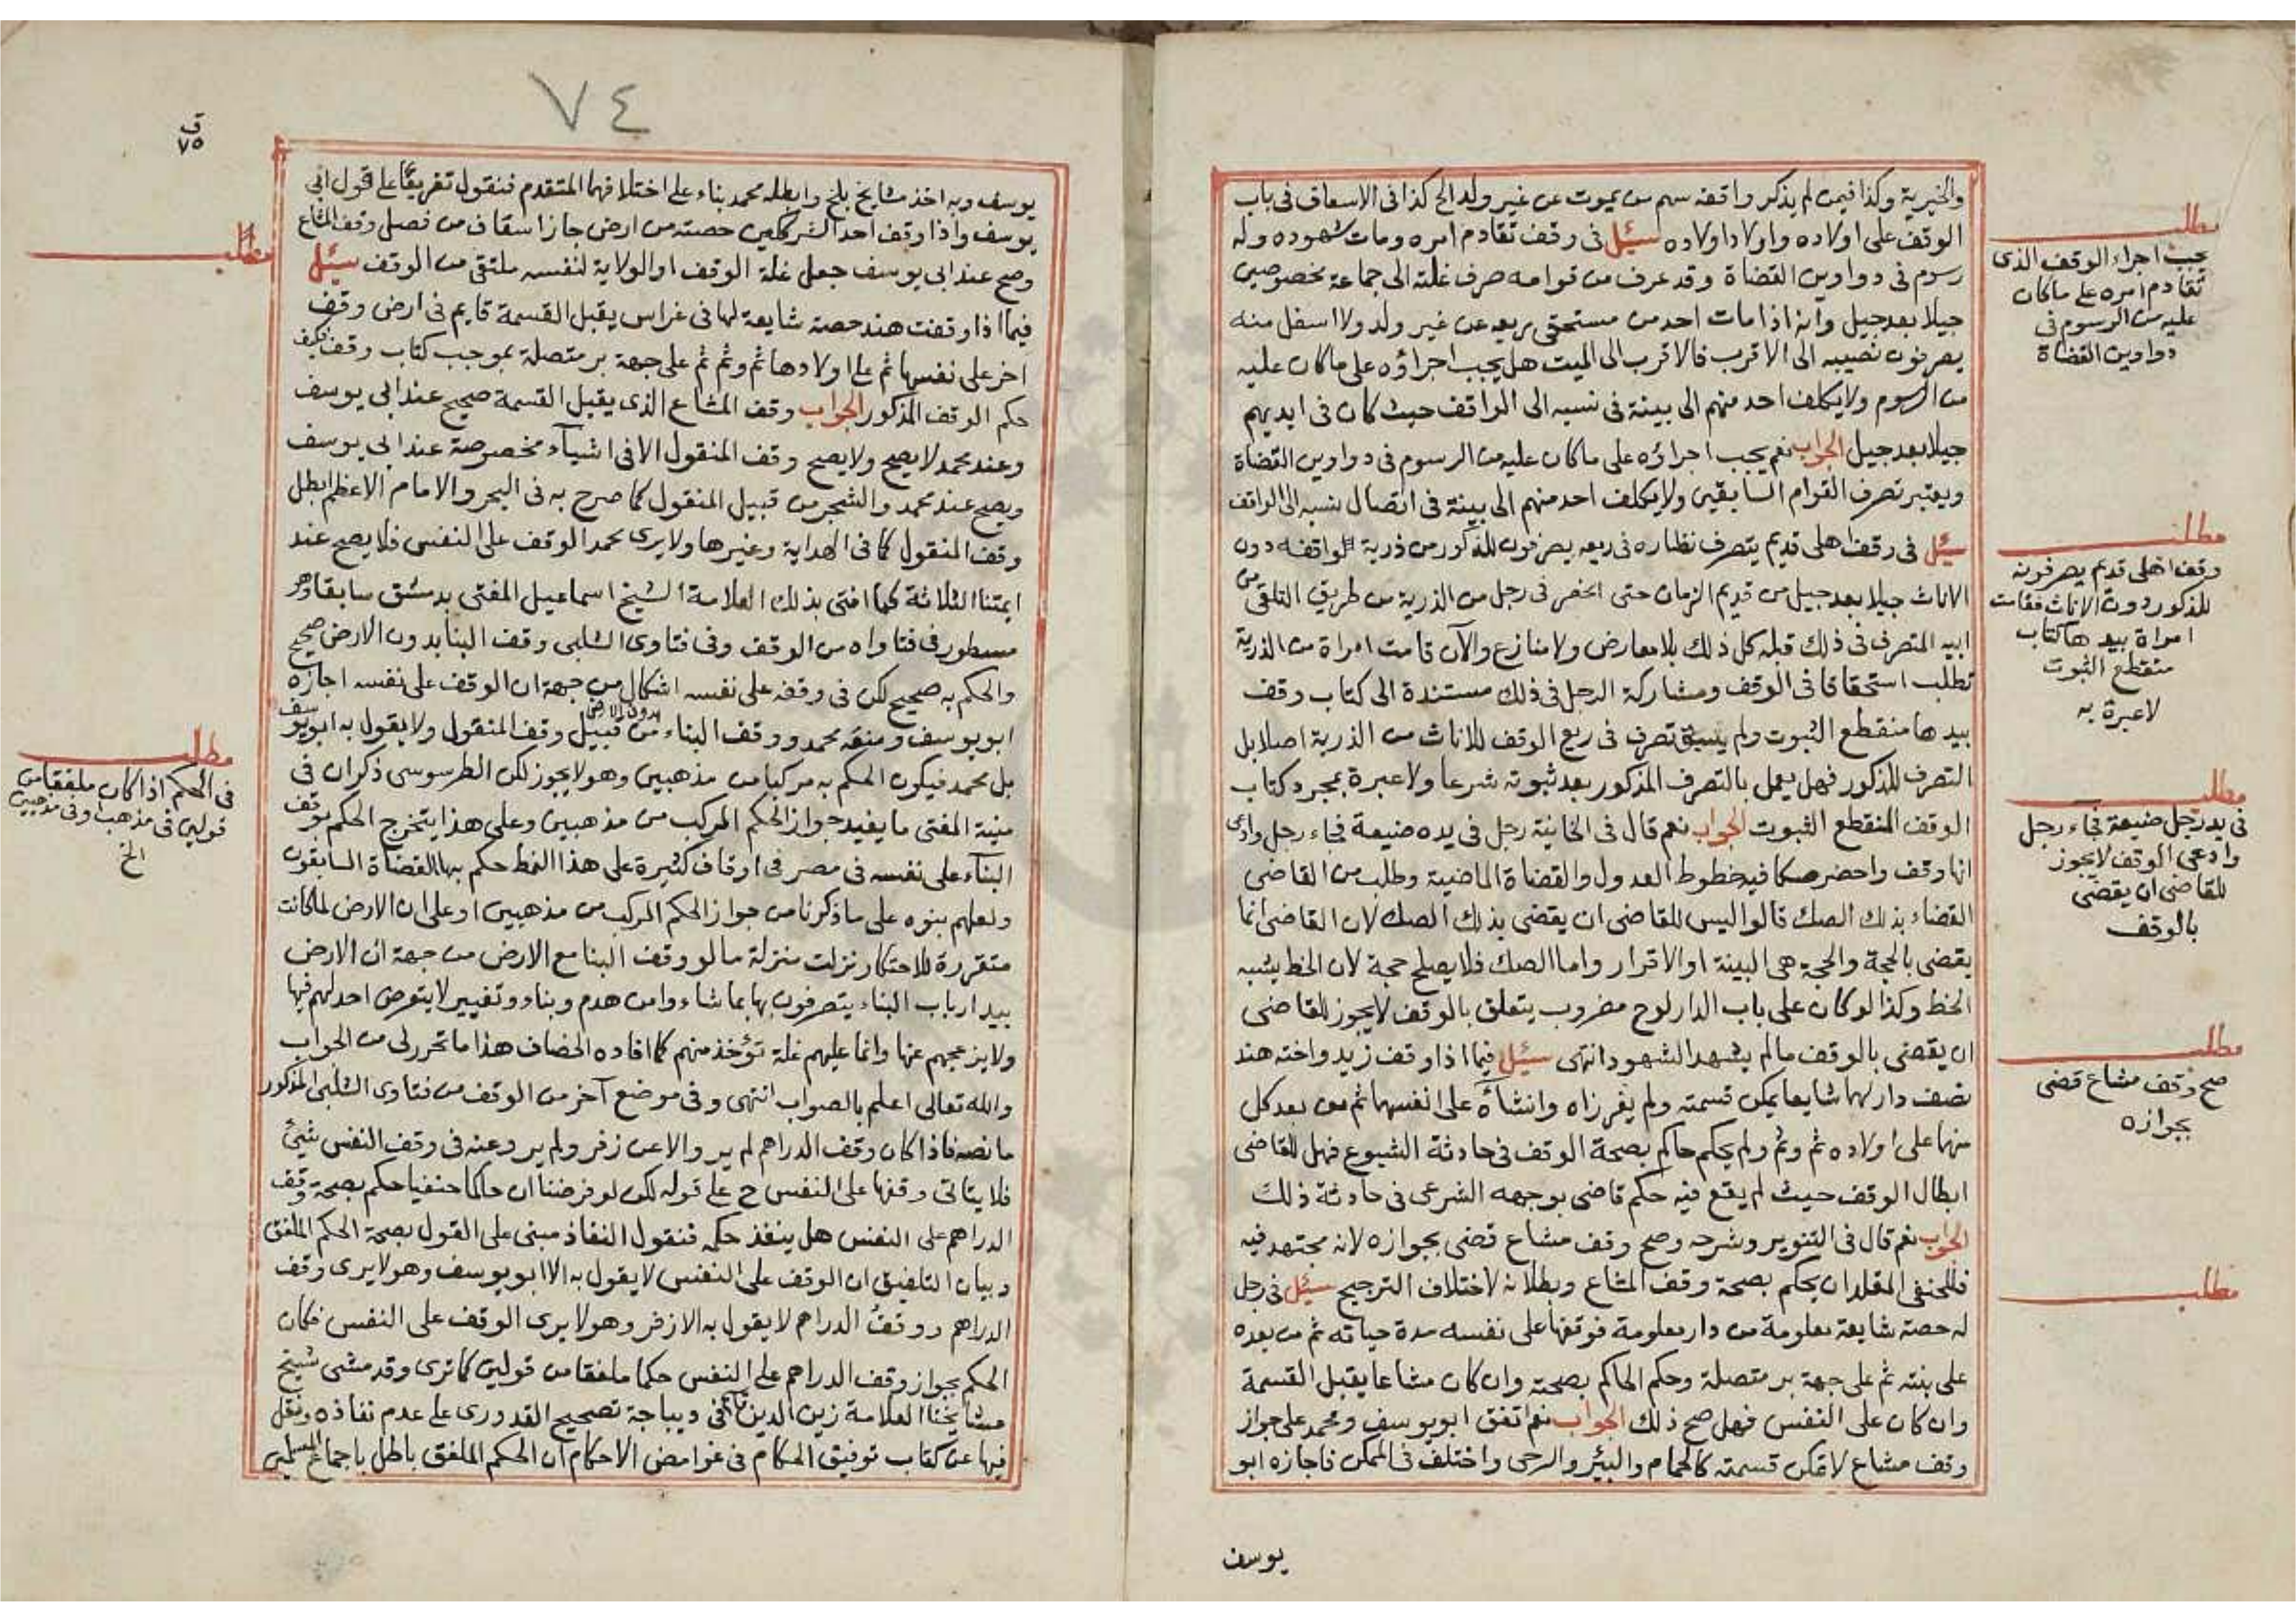 والخيرية وكذا فيمن لم يذكر واقفه سهم من يموت عن غير ولد الخ كذا في الاسعاف في باب
الوقف على اولاده واولاد اولاده سئل في وقف تقادم امره ومات شهوده وله
رسوم في دواوين القضاة وقد عرف من قوامه صرف غلته الى جماعة مخصوصين
جيلا بعد جيل وانه اذا مات احد من مستحقي ريعه عن غير ولد ولا اسفل منه
يصرفون نصيبه الى الاقرب فالاقرب الى الميت هل يجب اجراؤه على ما كان عليه
من الرسوم ولا يكلف احد منهم الى بينة في نسبه الى الواقف حيث كان في ايديهم
جيلا بعد جيل الجواب نعم يجب اجراؤه على ما كان عليه من الرسوم في دواوين القضاة
ويعتبر تصرف القوام السابقين ولا يكلف احد منهم الى بينة في اتصال نسبه الى الواقف
سئل في وقف اهلي قديم يتصرف نظاره في ريعه يصرفون للذكور من ذرية الواقفه دون
الاناث جيلا بعد جيل من قديم الزمان حتى انحصر في رجل من الذرية من طريق التلقي من
ابيه المتصرف في ذلك قبله كل ذلك بلا معارض ولا منازع والآن قامت امراة من الذرية
تطلب استحقاقا في الوقف ومشاركة الرجل في ذلك مستندة الى كتاب وقف
بيدها منقطع الثبوت ولم يسبق تصرف في ريع الوقف للاناث من الذرية اصلا بل
التصرف للذكور فهل يعمل بالتصرف المذكور بعد ثبوته شرعا ولا عبرة بمجرد كتاب
الوقف المنقطع الثبوت الجواب نعم قال في الخانية رجل في يده ضيعة فجاء رجل وادعى
انها وقف واحضر صكا فيه خطوط العدول والقضاة الماضية وطلب من القاضي
القضاء بذلك الصك قالوا ليس للقاضي ان يقضي بذلك الصك لان القاضي انما
يقضي بالحجة والحجة هي البينة او الاقرار واما الصك فلا يصلح حجة لان الخط يشبه
الخط وكذا لو كان على باب الدار لوح مضروب يتعلق بالوقف لا يجوز للقاضي
ان يقضي بالوقف ما لم يشهد الشهود انتهى سئل فيما اذا وقف زيد واخته هند
نصف دار لهما شايعا يمكن قسمته ولم يفرزاه وانشآه على انفسهما ثم من بعد كل
منهما على اولاده ثم وثم ولم يحكم حاكم بصحة الوقف في حادثة الشيوع فهل للقاضي
ابطال الوقف حيث لم يقع فيه حكم قاضي بوجهه الشرعي في حادثة ذلك
الجواب نعم قال في التنوير وشرحه وصح وقف مشاع قضي بجوازه لانه مجتهد فيه
فللحنفي المقلد ان يحكم بصحة وقف المشاع وبطلانه لاختلاف الترجيح سئل في رجل
له حصة شايعة معلومة من دار معلومة فوقفها على نفسه مدة حياته ثم من بعده
على بنته ثم على جهة بر متصلة وحكم الحاكم بصحته وان كان مشاعا يقبل القسمة
وان كان على النفس فهل صح ذلك الجواب نعم اتفق ابو يوسف ومحمد على جواز
وقف مشاع لا تمكن قسمته كالحمام والبئر والرحى واختلف في الممكن فاجازه ابو
يوسف
مطلب
يجب اجراء الوقف الذي
تقادم امره على ما كان
عليه من الرسوم في
دواوين القضاة
مطلب
وقف اهلي قديم يصرفونه
للذكور دون الاناث فقامت
امراة بيدها كتاب
منقطع الثبوت
لا عبرة به
مطلب
في يد رجل ضيعة فجاء رجل
وادعى الوقف لا يجوز
للقاضي ان يقضي
بالوقف
مطلب
صح وقف مشاع قضي
بجوازه
مطلب
٧٤
ق
٧٥
يوسف وبه اخذ مشايخ بلخ وابطله محمد بناء على اختلافهما المتقدم فنقول تفريعا على قول ابي
يوسف واذا وقف احد الشريكين حصته من ارض جاز اسعاف من فصل وقف المشاع
وصح عند ابي يوسف جعل غلة الوقف او الولاية لنفسه ملتقى من الوقف سئل
فيما اذا وقفت هند حصة شايعة لها في غراس يقبل القسمة قايم في ارض وقف
اخر على نفسها ثم على اولادها ثم وثم ثم على جهة بر متصلة بموجب كتاب وقف فكيف
حكم الوقف المذكور الجواب وقف المشاع الذي يقبل القسمة صحيح عند ابي يوسف
وعند محمد لا يصح ولا يصح وقف المنقول الا في اشيآء مخصوصة عند ابي يوسف
ويصح عند محمد والشجر من قبيل المنقول كما صرح به في البحر والامام الاعظم ابطل
وقف المنقول كما في الهداية وغيرها ولا يرى محمد الوقف على النفس فلا يصح عند
ايمتنا الثلاثة كما افتى بذلك العلامة الشيخ اسماعيل المفتي بدمشق سابقا وهو
مسطور في فتاواه من الوقف وفي فتاوى الشلبي وقف البنا بدون الارض صحيح
والحكم به صحيح لكن في وقفه على نفسه اشكال من جهة ان الوقف على نفسه اجازه
ابو يوسف ومنعه محمد ووقف البناء بدون الارض من قبيل وقف المنقول ولا يقول به ابو يوسف
بل محمد فيكون الحكم به مركبا من مذهبين وهو لا يجوز لكن الطرسوسي ذكر ان في
منية المفتي ما يفيد جواز الحكم المركب من مذهبين وعلى هذا يتخرج الحكم بوقف
البنآء على نفسه في مصر في اوقاف كثيرة على هذا النمط حكم بها القضاة السابقون
ولعلهم بنوه على ما ذكرنا من جواز الحكم المركب من مذهبين او على ان الارض لما كانت
متقررة للاحتكار نزلت منزلة ما لو وقف البنا مع الارض من جهة ان الارض
بيد ارباب البناء يتصرفون بها بما شاءوا من هدم وبناء وتغيير لا يتعرض احد لهم فيها
ولا يزعجهم عنها وانما عليهم غلة تؤخذ منهم كما افاده الخصاف هذا ما تحرر لي من الجواب
والله تعالى اعلم بالصواب انتهى وفي موضع آخر من الوقف من فتاوى الشلبي المذكور
ما نصه فاذا كان وقف الدراهم لم يرو الا عن زفر ولم يرو عنه في وقف النفس شيئ
فلا يتاتى وقفها على النفس ح على قوله لكن لو فرضنا ان حاكما حنفيا حكم بصحة وقف
الدراهم على النفس هل ينفذ حكمه فنقول النفاذ مبني على القول بصحة الحكم الملفق
وبيان التلفيق ان الوقف على النفس لا يقول به الا ابو يوسف وهو لا يرى وقف
الدراهم ووقف الدراهم لا يقول به الا زفر وهو لا يرى الوقف على النفس فكان
الحكم بجواز وقف الدراهم على النفس حكما ملفقا من قولين كما ترى وقد مشى شيخ
مشايخنا العلامة زين الدين قاسم في ديباجة تصحيح القدوري على عدم نفاذه ونقل
فيها عن كتاب توفيق الحكام في غوامض الاحكام ان الحكم الملفق باطل باجماع المسلمين
مطلب
مطلب
في الحكم اذا كان ملفقا من
قولين في مذهب او في مذهبين
الخ